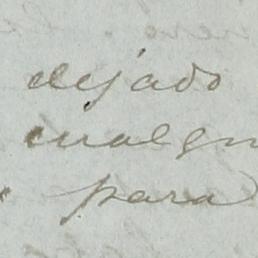 dejado
cualqu
para